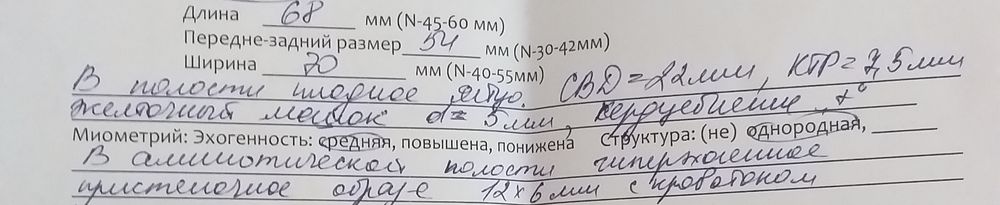 Длина 68 мм (N-45-60 мм)
Передне-задний размер 54 мм (N-30-42мм)
Ширина 70 мм (N-40-55мм)
В полости плодное яйцо. СВD=22мм, КТР=7,5мм
желточный мешок d=5мм, сердцебиение +
Миометрий: Эхогенность: средняя, повышена, понижена Структура: (не) однородная,
В амниотической полости гиперэхогенное
пристеночное образ-е 12х6мм с кровотоком